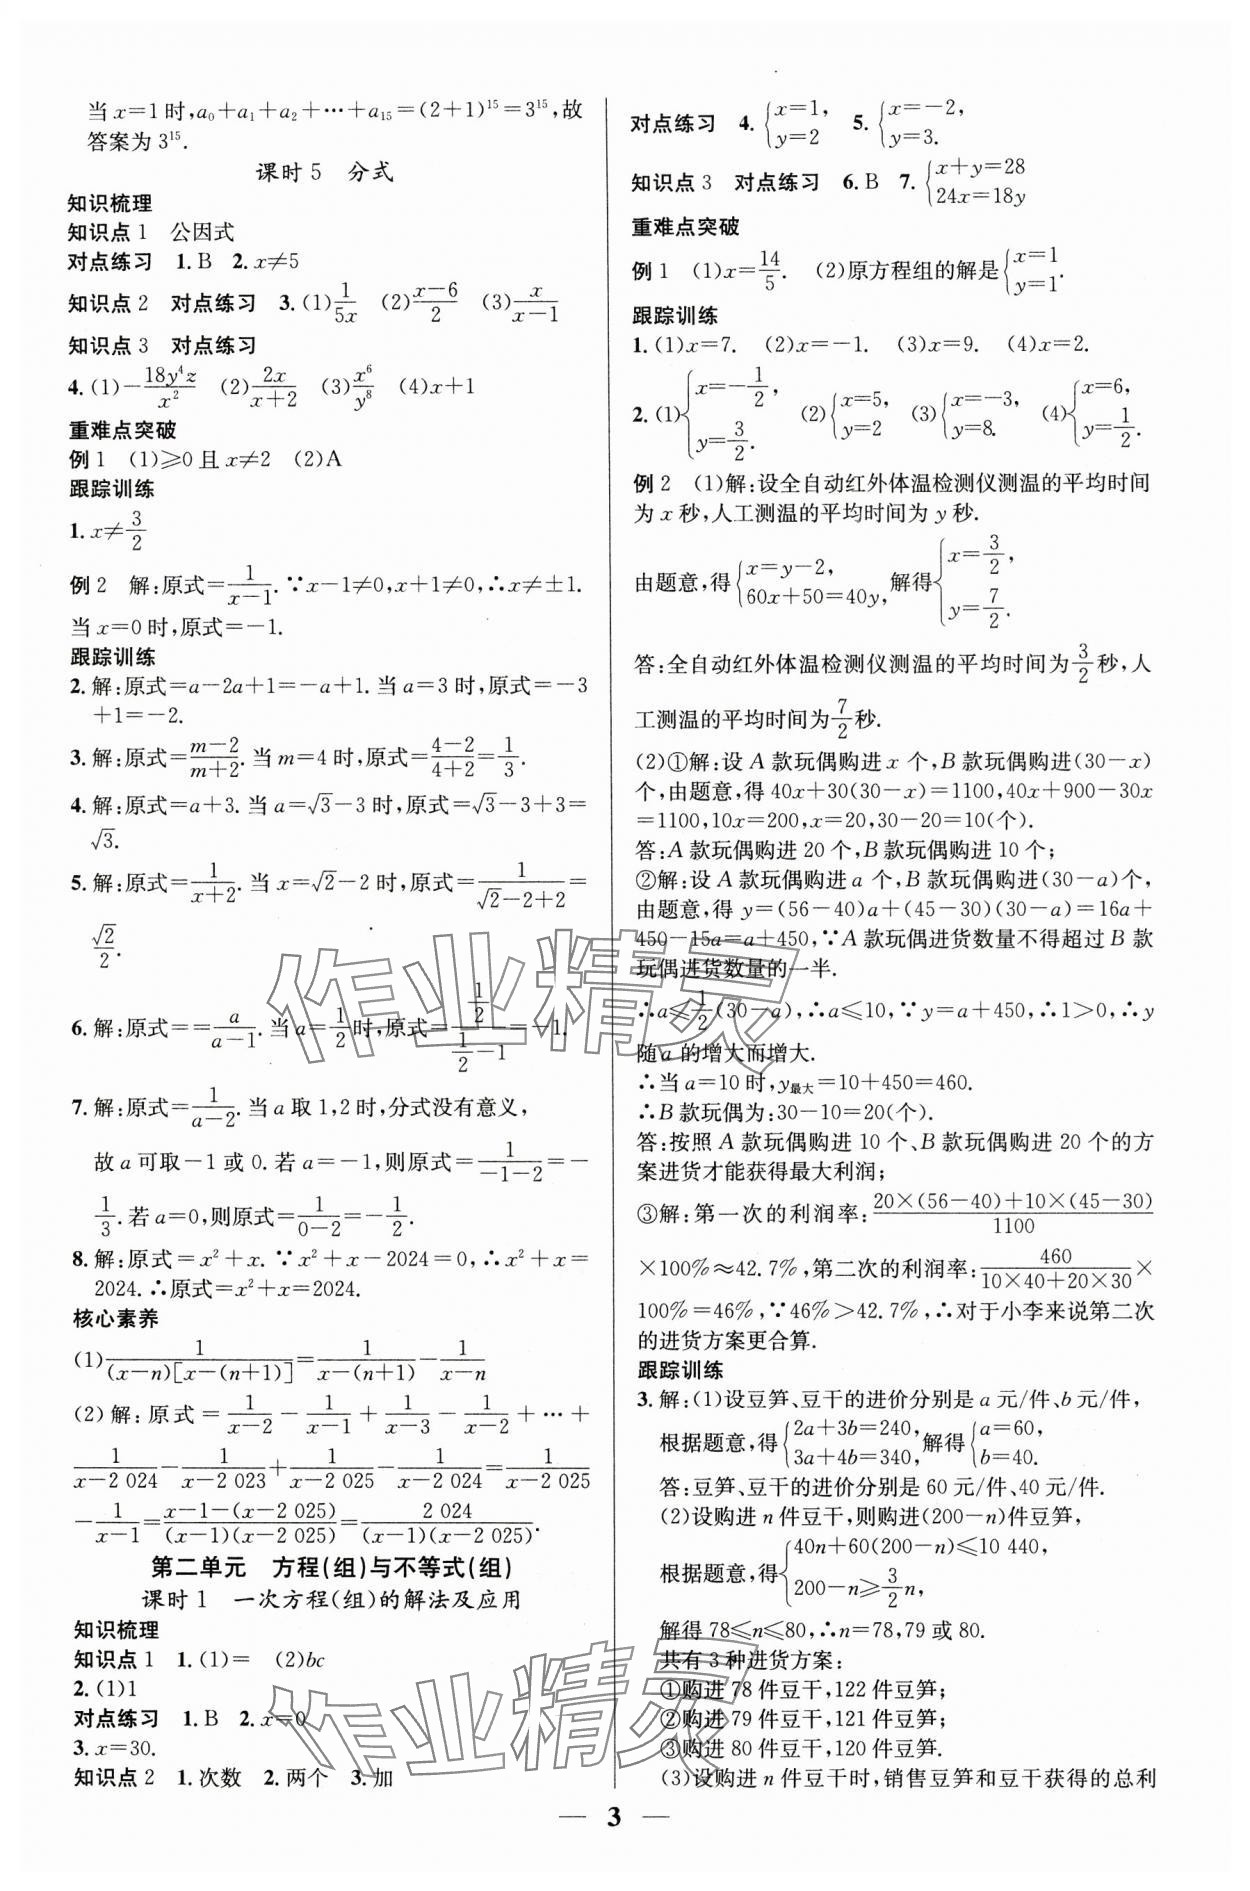 当 x=1 时,a₀+a₁+a₂+⋯+a₁₅=(2+1)¹⁵=3¹⁵,故
答案为 3¹⁵.
课时 5　分式
知识梳理
知识点 1　公因式
对点练习　1. B　2. x≠5
知识点 2　对点练习　3. (1)1/(5x)　(2)(x-6)/2　(3)x/(x-1)
知识点 3　对点练习
4. (1)-18y⁴z/x²　(2)2x/(x+2)　(3)x⁶/y⁸　(4)x+1
重难点突破
例 1　(1)≥0 且 x≠2　(2)A
跟踪训练
1. x≠3/2
例 2　解:原式=1/(x-1). ∵x-1≠0,x+1≠0,∴x≠±1.
当 x=0 时,原式=-1.
跟踪训练
2. 解:原式=a-2a+1=-a+1. 当 a=3 时,原式=-3
+1=-2.
3. 解:原式=(m-2)/(m+2). 当 m=4 时,原式=(4-2)/(4+2)=1/3.
4. 解:原式=a+3. 当 a=√3-3 时,原式=√3-3+3=
√3.
5. 解:原式=1/(x+2). 当 x=√2-2 时,原式=1/(√2-2+2)=
√2/2.
6. 解:原式==a/(a-1). 当 a=1/2 时,原式=(1/2)/(1/2-1)=-1.
7. 解:原式=1/(a-2). 当 a 取 1,2 时,分式没有意义,
故 a 可取-1 或 0. 若 a=-1,则原式=1/(-1-2)=-
1/3. 若 a=0,则原式=1/(0-2)=-1/2.
8. 解:原式=x²+x. ∵x²+x-2024=0,∴x²+x=
2024. ∴原式=x²+x=2024.
核心素养
(1)1/((x-n)[x-(n+1)])=1/(x-(n+1))-1/(x-n)
(2)解:原式=1/(x-2)-1/(x-1)+1/(x-3)-1/(x-2)+⋯+
1/(x-2 024)-1/(x-2 023)+1/(x-2 025)-1/(x-2 024)=1/(x-2 025)
-1/(x-1)=(x-1-(x-2 025))/((x-1)(x-2 025))=2 024/((x-1)(x-2 025)).
第二单元　方程(组)与不等式(组)
课时 1　一次方程(组)的解法及应用
知识梳理
知识点 1　1. (1)=　(2)bc
2. (1)1
对点练习　1. B　2. x=0
3. x=30.
知识点 2　1. 次数　2. 两个　3. 加
对点练习　4. {x=1, y=2　5. {x=-2, y=3.
知识点 3　对点练习　6. B　7. {x+y=28 24x=18y
重难点突破
例 1　(1)x=14/5.　(2)原方程组的解是{x=1 y=1.
跟踪训练
1. (1)x=7.　(2)x=-1.　(3)x=9.　(4)x=2.
2. (1){x=-1/2, y=3/2.　(2){x=5, y=2　(3){x=-3, y=8.　(4){x=6, y=-1/2.
例 2　(1)解:设全自动红外体温检测仪测温的平均时间
为 x 秒,人工测温的平均时间为 y 秒.
由题意,得{x=y-2, 60x+50=40y, 解得{x=3/2, y=7/2.
答:全自动红外体温检测仪测温的平均时间为3/2秒,人
工测温的平均时间为7/2秒.
(2)①解:设 A 款玩偶购进 x 个,B 款玩偶购进(30-x)
个,由题意,得 40x+30(30-x)=1100,40x+900-30x
=1100,10x=200,x=20,30-20=10(个).
答:A 款玩偶购进 20 个,B 款玩偶购进 10 个;
②解:设 A 款玩偶购进 a 个,B 款玩偶购进(30-a)个,
由题意,得 y=(56-40)a+(45-30)(30-a)=16a+
450-15a=a+450,∵A 款玩偶进货数量不得超过 B 款
玩偶进货数量的一半.
∴a≤1/2(30-a),∴a≤10,∵y=a+450,∴1>0,∴y
随 a 的增大而增大.
∴当 a=10 时,y最大=10+450=460.
∴B 款玩偶为:30-10=20(个).
答:按照 A 款玩偶购进 10 个、B 款玩偶购进 20 个的方
案进货才能获得最大利润;
③解:第一次的利润率:(20×(56-40)+10×(45-30))/1100
×100%≈42.7%,第二次的利润率:460/(10×40+20×30)×
100%=46%,∵46%>42.7%,∴对于小李来说第二次
的进货方案更合算.
跟踪训练
3. 解:(1)设豆笋、豆干的进价分别是 a 元/件、b 元/件,
根据题意,得{2a+3b=240, 3a+4b=340, 解得{a=60, b=40.
答:豆笋、豆干的进价分别是 60 元/件、40 元/件.
(2)设购进 n 件豆干,则购进(200-n)件豆笋,
根据题意,得{40n+60(200-n)≤10 440, 200-n≥3/2n,
解得 78≤n≤80,∴n=78,79 或 80.
共有 3 种进货方案:
①购进 78 件豆干,122 件豆笋;
②购进 79 件豆干,121 件豆笋;
③购进 80 件豆干,120 件豆笋.
(3)设购进 n 件豆干时,销售豆笋和豆干获得的总利
— 3 —
作业精灵
作业精灵